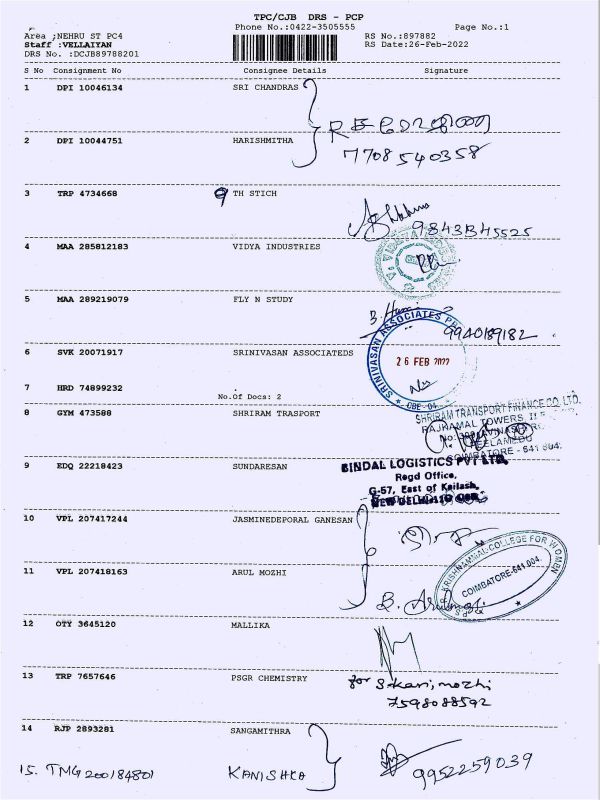 TPC/CJB DRS - PCP
Phone No.:0422-3505555
Page No.:1
Area ;NEHRU ST PC4
RS No.:897882
Staff :VELLAIYAN
RS Date:26-Feb-2022
DRS No. :DCJB89788201
S No Consignment No Consignee Details Signature
1 DPI 10046134 SRI CHANDRAS
2 DPI 10044751 HARISHMITHA
7708540358
3 TRP 4734668 9 TH STICH
9843345525
4 MAA 285812183 VIDYA INDUSTRIES
5 MAA 289219079 FLY N STUDY
9940189182
SRINIVASAN ASSOCIATES
26 FEB 2022
CBE-04
6 SVK 20071917 SRINIVASAN ASSOCIATEDS
7 HRD 74899232
No.Of Docs: 2
8 GYM 473588 SHRIRAM TRASPORT
SHRIRAM TRANSPORT FINANCE CO. LTD.
RAJKAMAL TOWERS,
COIMBATORE - 641 004.
9 EDQ 22218423 SUNDARESAN
BINDAL LOGISTICS PVT LTD.
Regd Office,
G-57, East of Kailash,
NEW DELHI-110
10 VPL 207417244 JASMINEDEPORAL GANESAN
KRISHNAMMAL COLLEGE FOR WOMEN
COIMBATORE-641 004.
11 VPL 207418163 ARUL MOZHI
12 OTY 3645120 MALLIKA
13 TRP 7657646 PSGR CHEMISTRY
for S.kanimozhi
7598088592
14 RJP 2893281 SANGAMITHRA
15. TMG200184801 KANISHKA
9952259039